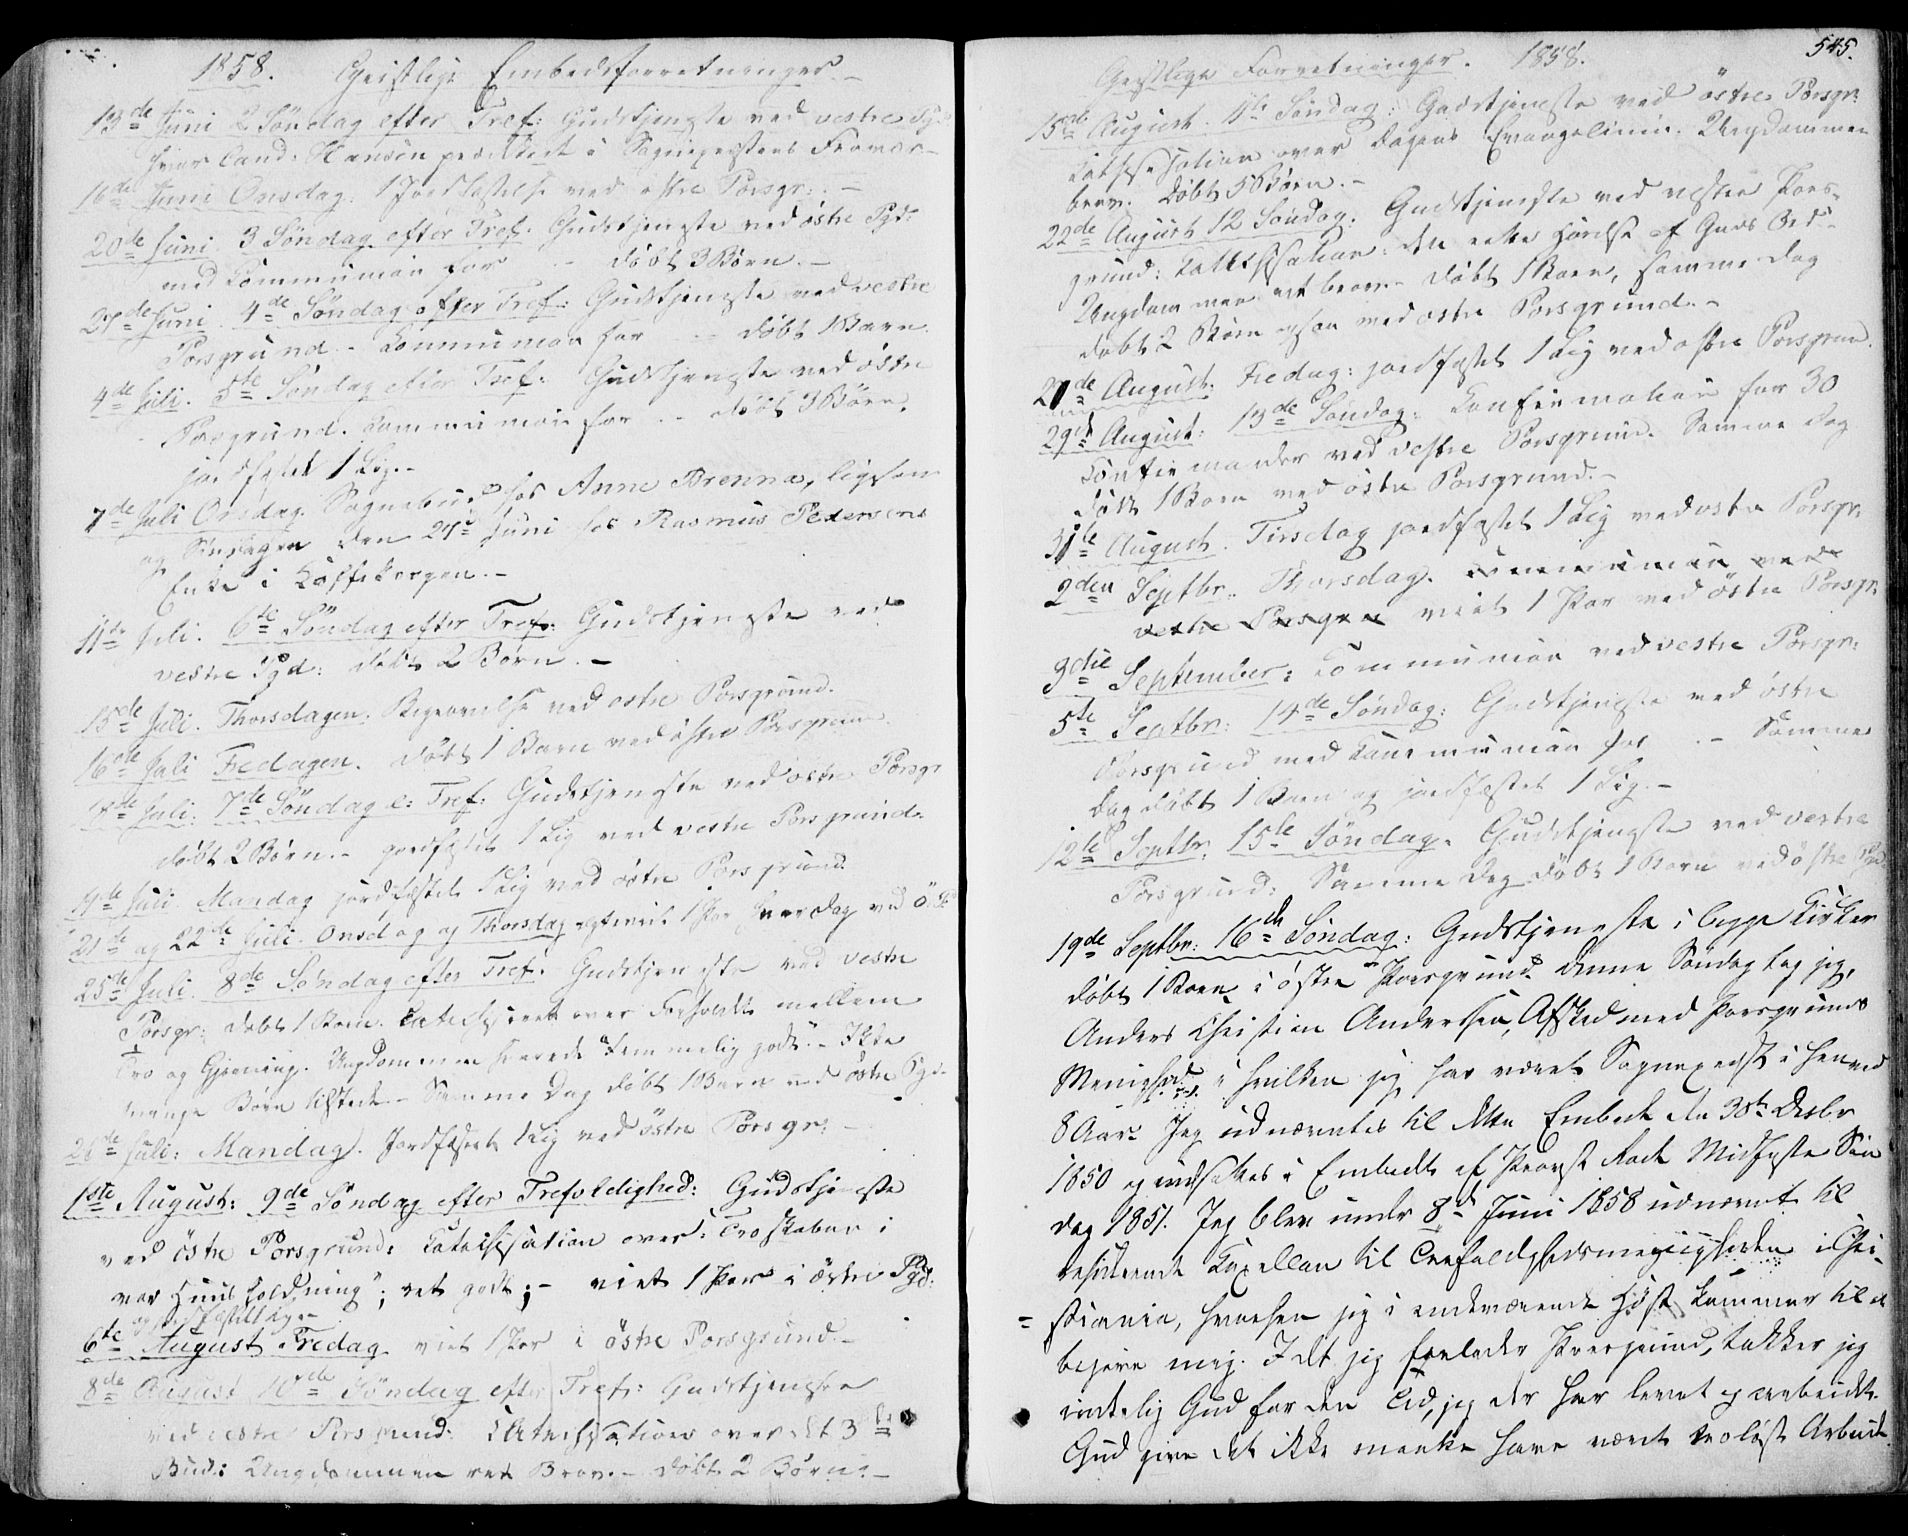 1858. Geistlige Embedsforretninger.-
13de Juni 2 Søndag efter Tref: Gudstjeneste ved vestre Pgd.
hvor Cand: Hansen prædiket i Sognepræstens Fravær-
16de Juni Onsdag. 1 Jordfæstelse ved østre Porsgr: -
20de Juni 3 Søndag efter Tref. Gudstjeneste ved østre Pgd.
med Communion for - døbt 3 Børn. -
27de Juni. 4de Søndag efter Tref: Gudstjeneste ved vestre
Porsgrund. - Communion for - døbt 1 Barn.
4de Juli. 5te Søndag efter Tref: Gudstjeneste ved østre
Porsgrund. Communion for - døbt 3 Børn.
jordfæstet 1 Lig. -
7de Juli Onsdag. Sognebud hos Anne Brenna, ligesom
og den 27de Juni hos Rasmus Pedersens
Enke i
11te Juli. 6te Søndag efter Tref: Gudstjeneste ved
vestre Pgd: døbt 2 Børn. -
15de Juli. Thorsdagen. Begravelse ved østre Porsgrund.
16de Juli Fredagen. døbt 1 Barn ved østre Porsgrund.
18de Juli: 7de Søndag e: Tref: Gudstjeneste ved østre Porsgr
døbt 2 Børn. - jordfæstet 1 Lig ved vestre Porsgrund.
19de Juli. Mandag jordfæstet 1 Lig ved østre Porsgrund.
21de og 22de Juli. Onsdag og Thorsdag egteviet 1 Par hver Dag ved Ö. P.
25de Juli. 8de Søndag efter Tref: Gudstjeneste ved vestre
Porsgr: døbt 1 Barn. Catechiseret over Forholdet mellem
Tro og Gjerning. Ungdommen svarede temmelig godt. - Ikke
mange Børn tilstede. - Samme Dag døbt 1 Barn ved østre Pgd.
26de Juli: Mandag. Jordfæstet 1 Lig ved østre Porsgr: -
1ste August: 9de Søndag efter Trefoldighed: Gudstjeneste
ved østre Porsgrund: Katechisation over: Troskaben i
vor Huusholdning"; ret godt; - viet 1 Par i østre Pgd:
og jordfæstet 1 Lig -
6te August Fredag viet 1 Par i østre Porsgrund. -
8de August 10de Søndag efter Tref: Gudstjeneste
ved vestre Porsgrund. Katechisation over det 3de
Bud: Ungdommen ret Brav. - døbt 2 Børn. -
545.
Geistlige Forretninger. 1858.
15de August. 11te Søndag: Gudstjeneste ved østre Porsgr:
Katechisation over Dagens Evangelium. Ungdommen
brav. Døbt 5 Børn. -
22de August 12 Søndag. Gudstjeneste ved vestre Pors-
grund: Katechisation: den rette Hørelse af Guds Ord.
Ungdommen ret brav. - Døbt 1 Barn, samme Dag
døbt 2 Børn ogsaa ved østre Porsgrund. -
27de August: Fredag: jordfæstet 1 Lig ved østre Porsgrund.
29de August: 13de Søndag: Confirmation for 30
Confirmander ved vestre Porsgrund. Samme Dag
døbt 1 Barn ved østre Porsgrund. -
31te August. Tirsdag jordfæstet 1 Lig ved østre Porsgr:
2den Septbr. Thorsdag. Communion ved
vestre Porsgrun viet 1 Par ved østre Porsgr:
3die September: Communion ved vestre Porsgr:
5te Septbr: 14de Søndag: Gudstjeneste ved østre
Porsgrund med Communion for - Samme
Dag døbt 1 Barn og jordfæstet 1 Lig. -
12te Septbr. 15te Søndag. Gudstjeneste ved vestre
Porsgrund: Samme Dag døbt 1 Barn ved østre Pgd
19de Septbr: 16de Søndag: Gudstjeneste i begge Kirker
døbt 1 Barn i østre Porsgrund. Denne Søndag tog jeg,
Anders Christian Anderssen, Afsked med Porsgrunds
Menighed, i hvilken jeg har været Sognepræst i henved
8 Aar. Jeg udnævntes til dette Embede den 30te Decbr
1850 og indsattes i Embedet af Provst Rode Midfaste Søn
dag 1851. Jeg blev under 8de Juni 1858 udnævnt til
residerende Kapellan til Trefoldighedsmenigheden i Chri-
stiania, hvorhen jeg i indeværende Høst kommer til at
begive mig. Idet jeg forlader Porsgrund, takker jeg
inderlig Gud for den Tid, jeg der har levet og arbeidet.
Gud give det ikke maatte have været troløst Arbeide